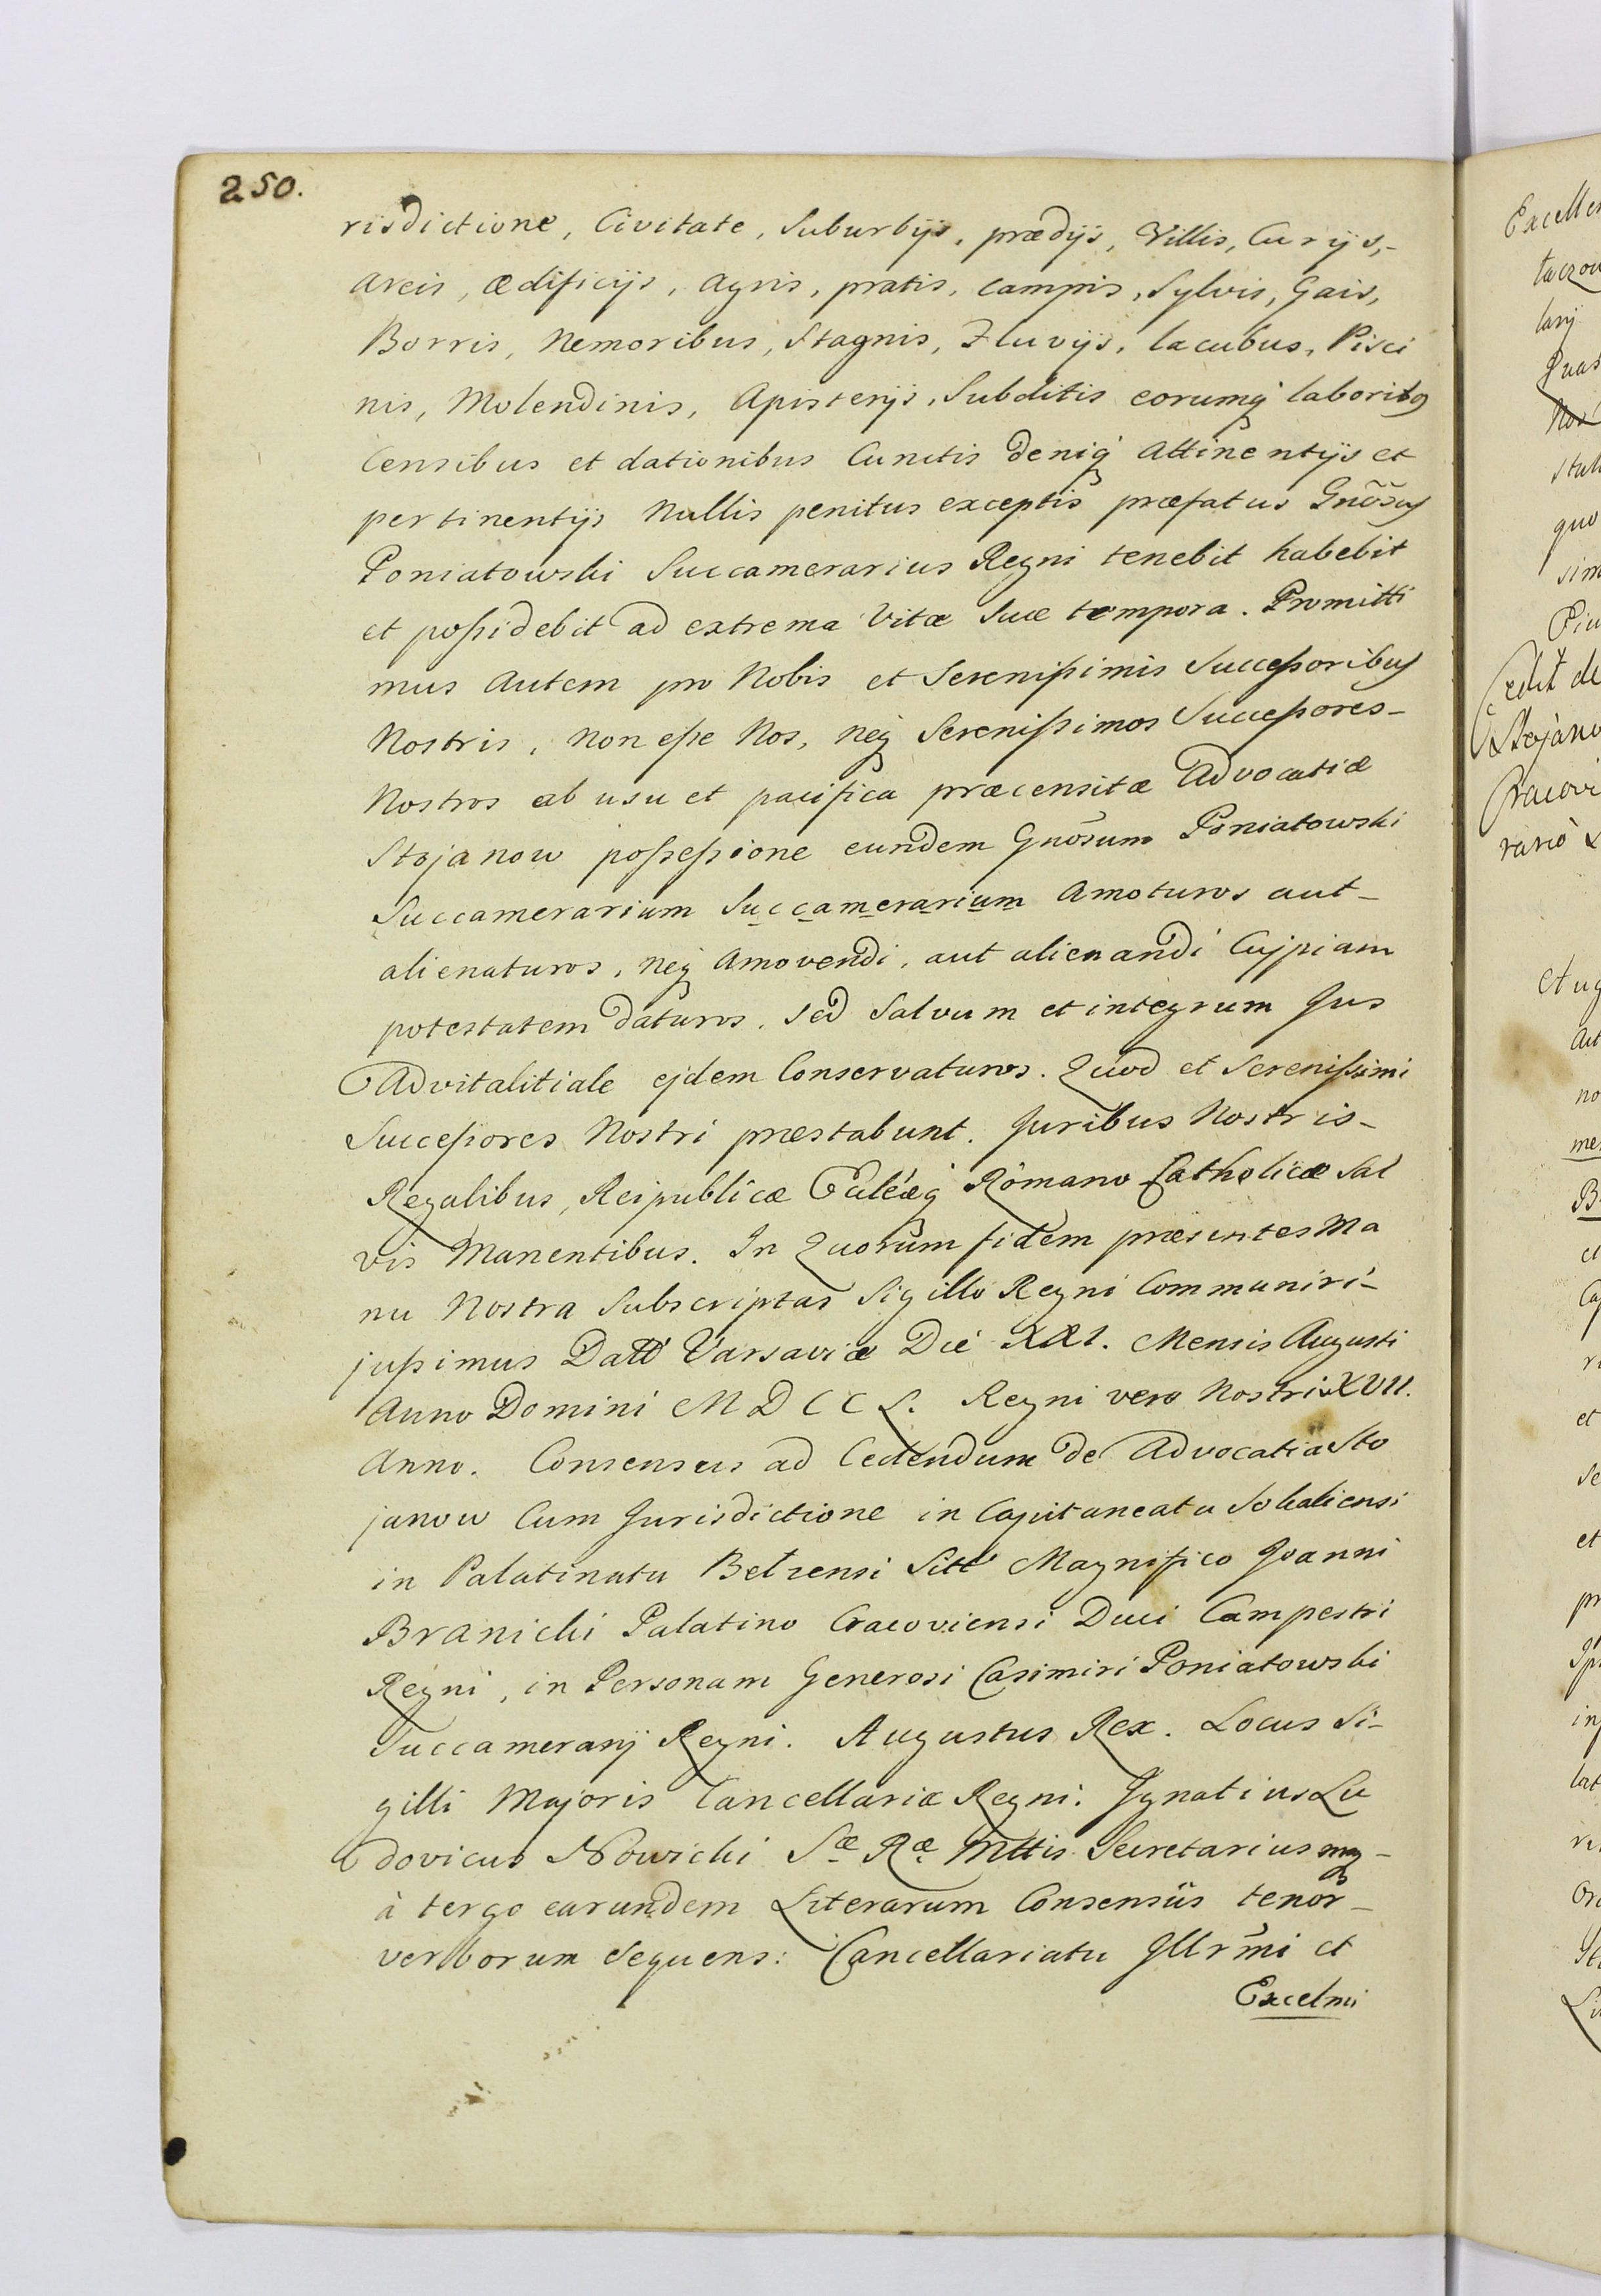 250.
risdictione, Civitate, Suburbijs, prædijs, Villis, Curijs,-
areis, ædificijs, agris, pratis, campis, Sylvis, Gais,
Borris, Nemoribus, Stagnis, Fluvijs, lacubus, Pisci
nis, Molendinis, Apisterijs, Subditis eorumq́ laboribꝫ
Censibus et dationibus Cunctis deniq́ Attinentijs et
pertinentijs Nullis penitus exceptis præfatus Gnõsus
Poniatowski Succamerarius Regni tenebit habebit
et poſsidebit ad extrema Vitæ Suæ tempora. Promitti
mus Autem pro Nobis et Sereniſsimis Succeſsoribus
Nostris, Non eſse Nos, neq́ Sereniſsimos Succeſsores-
Nostros ab usu et pacifica præcensitæ Advocatiæ
Stojanow poſseſsione eundem Gnõsum Poniatowski
Succamerarium Succamerarium Amoturos aut-
alienaturos, neq́ Amovendi, aut alienandi Cujpiam
potestatem daturos. Sed Salvum et integrum Jus
Advitalitiale ejdem Conservaturos. Quod et Sereniſsimi
Succeſsores Nostri præstabunt. Juribus Nostris-
Regalibus, Reipublicæ Ecleæq́ Romano Catholicæ Sal
vis Manentibus. In Quorum fidem præsentes Ma
nu Nostra Subscriptas Sigillo Regni Communiri-
juſsimus Datt Varsaviæ Die XXI. Mensis Augusti
Anno Domini MDCCL. Regni vero Nostri XVII.
Anno. Consensus ad Cedendum de Advocatia Sto
janow Cum Jurisdictione in Capitaneatu Sokaliensi
in Palatinatu Belzensi Sitt Magnifico Joanni
Branicki Palatino Cracoviensi Duci Campestri
Regni, in Personam Generosi Casimiri Poniatowski
Succamerarij Regni. Augustus Rex. Locus Si-
gilli Majoris Cancellariæ Regni. Ignatius Lu
dovicus Nowicki Sæ Ræ Mttis Secretarius mp-
à tergo earundem Literarum Consensûs tenor-
verborum Sequens: Cancellariatu Illrm̃i et
Excelmi